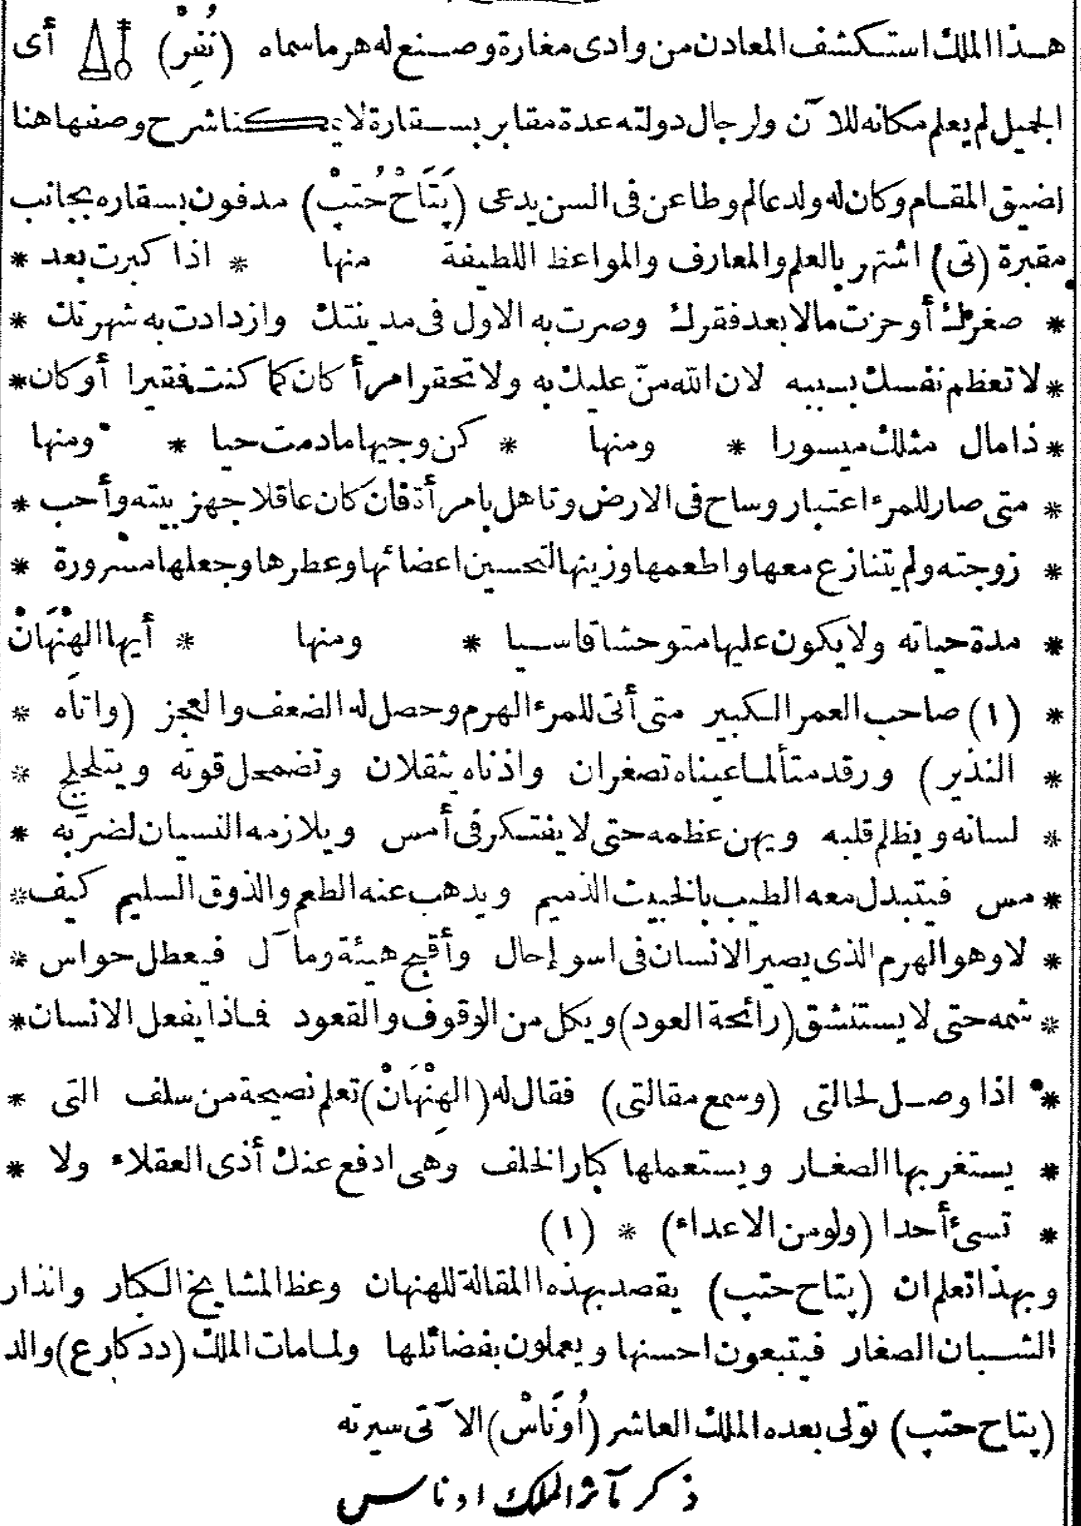 هذا الملك استكشف المعادن من وادى مغارة وصنع له هرما سماه (نُفِرْ) أى
الجميل لم يعلم مكانه للآن ولرجال دولته عدة مقابر بسقارة لا يمكننا شرح وصفها هنا
لضيق المقام وكان له ولد عالم وطاعن فى السن يدعى (پَتَاحْ حُتپْ) مدفون بسقاره بجانب
مقبرة (تى) اشتهر بالعلم والمعارف والمواعظ اللطيفة منها * اذا كبرت بعد *
* صغرك أو حزت مالا بعد فقرك وصرت به الاول فى مدينتك وازدادت به شهرتك *
* لا تعظم نفسك بسببه لان الله منّ عليك به ولا تحقر امرأ كان كما كنت فقيرا أو كان *
* ذا مال مثلك ميسورا * ومنها * كن وجيها مادمت حيا * ومنها
* متى صار للمرء اعتبار وساح فى الارض وتاهل بامرأة فان كان عاقلا جهز بيته وأحب *
* زوجته ولم يتنازع معها واطعمها وزينها لتحسين اعضائها وعطرها وجعلها مسرورة *
* مدة حياته ولا يكون عليها متوحشا قاسيا * ومنها * أيها الهِنْهَانْ
* (١) صاحب العمر الكبير متى أتى للمرء الهرم وحصل له الضعف والعجز (واتاه *
* النذير) ورقد متألما عيناه تصغران واذناه يثقلان وتضمحل قوته ويتلجلج *
* لسانه ويظلم قلبه ويهن عظمه حتى لا يفتكر فى أمس ويلازمه النسيان لضرّبه *
* مس فيتبدل معه الطيب بالخبيث الذميم ويدهب عنه الطعم والذوق السليم كيف *
* لا وهو الهرم الذى يصير الانسان فى اسو إحال وأقبح هيئة ومآل فيعطل حواس *
* شمه حتى لا يستنشق (رائحة العود) ويكل من الوقوف والقعود فماذا يفعل الانسان *
* اذا وصل لحالتى (وسمع مقالتى) فقال له (الهِنْهَانْ) تعلم نصيحة من سلف التى *
* يستغر بها الصغار ويستعملها كبار الخلف وهى ادفع عنك أذى العقلاء ولا *
* تسئ أحدا (ولو من الاعداء) * (١)
وبهذا تعلم ان (پتاح حتپ) يقصد بهذه المقالة للهنهان وعظ المشايخ الكبار وانذار
الشبان الصغار فيتبعون احسنها ويعملون بفضائلها ولما مات الملك (ددكارع) والد
(پتاح حتپ) تولى بعده الملك العاشر (أُونَاسْ) الآتى سيرته
ذكر مآثر الملك اوناس